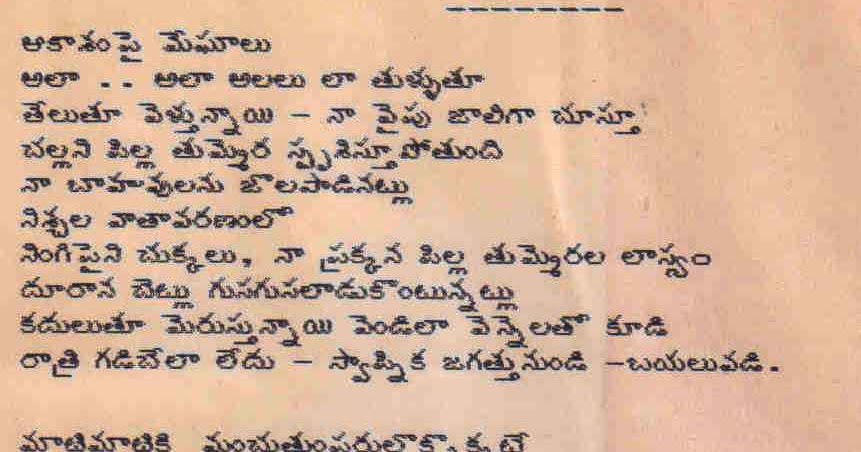 ఆకాశంపై మేఘాలు
అలా .. అలా అలలు లా తుళ్ళుతూ
తేలుతూ వెళ్తున్నాయి – నా వైపు జాలిగా చూస్తూ
చల్లని పిల్ల తుమ్మెర స్పృశిస్తూపోతుంది
నా బాహువులను జోలపాడినట్లు
నిశ్చల వాతావరణంలో
నింగిపైని చుక్కలు, నా ప్రక్కన పిల్ల తుమ్మెరల లాస్యం
దూరాన చెట్లు గుసగుసలాడుకొంటున్నట్లు
కదులుతూ మెరుస్తున్నాయి వెండిలా వెన్నెలతో కూడి
రాత్రి గడిచేలా లేదు – స్వాప్నిక జగత్తునుండి –బయలువడి.
మాటిమాటికి మంచుతుంపరులొక్కొక్కటే